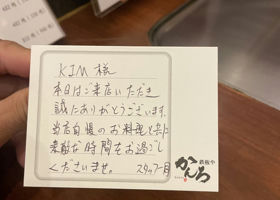 KIM 様
本日はご来店いただき
誠にありがとうございます。
当店自慢のお料理と共に
素敵な時間をお過ごし
くださいませ。 スタッフ一同
鉄板や
かんろ